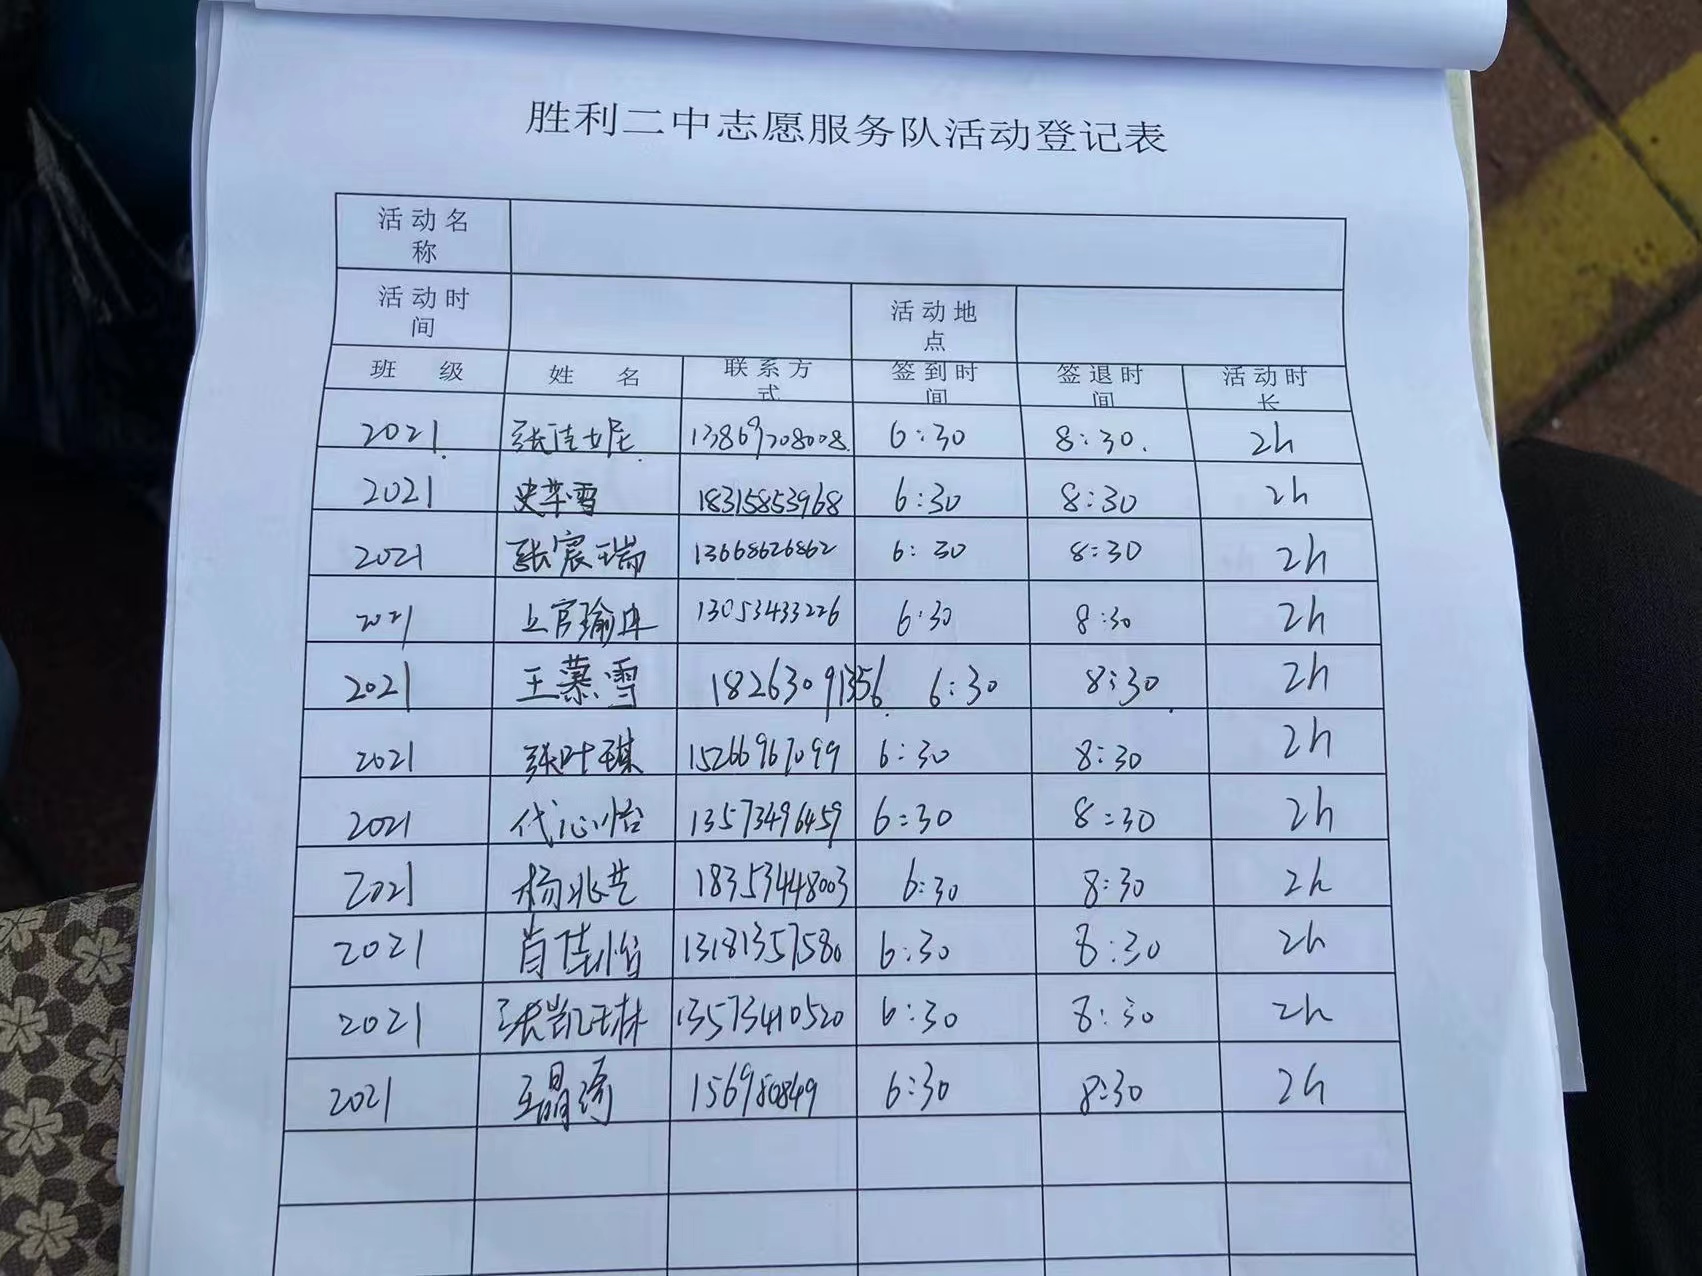 胜利二中志愿服务队活动登记表
活动名
称
活动时
间
活动地
点
班 级 姓 名 联系方式 签到时间 签退时间 活动时长
2021. 13869708008. 6:30 8:30. 2h
2021 史苹雪 18315853968 6:30 8:30 2h
2021 张宸瑞 13668626862 6:30 8:30 2h
2021 上官瑜冉 13053433226 6:30 8:30 2h
2021 王慕雪 18263091356. 6:30 8:30. 2h
2021 张叶琪 15266967099 6:30 8:30 2h
2021 代沁怡 13573496459 6:30 8:30 2h
2021 杨兆艺 18353448003 6:30 8:30 2h
2021 肖佳怡 13181357580 6:30 8:30 2h
2021 张凯琳 13573410520 6:30 8:30 2h
2021 王晶琦 156980849 6:30 8:30 2h